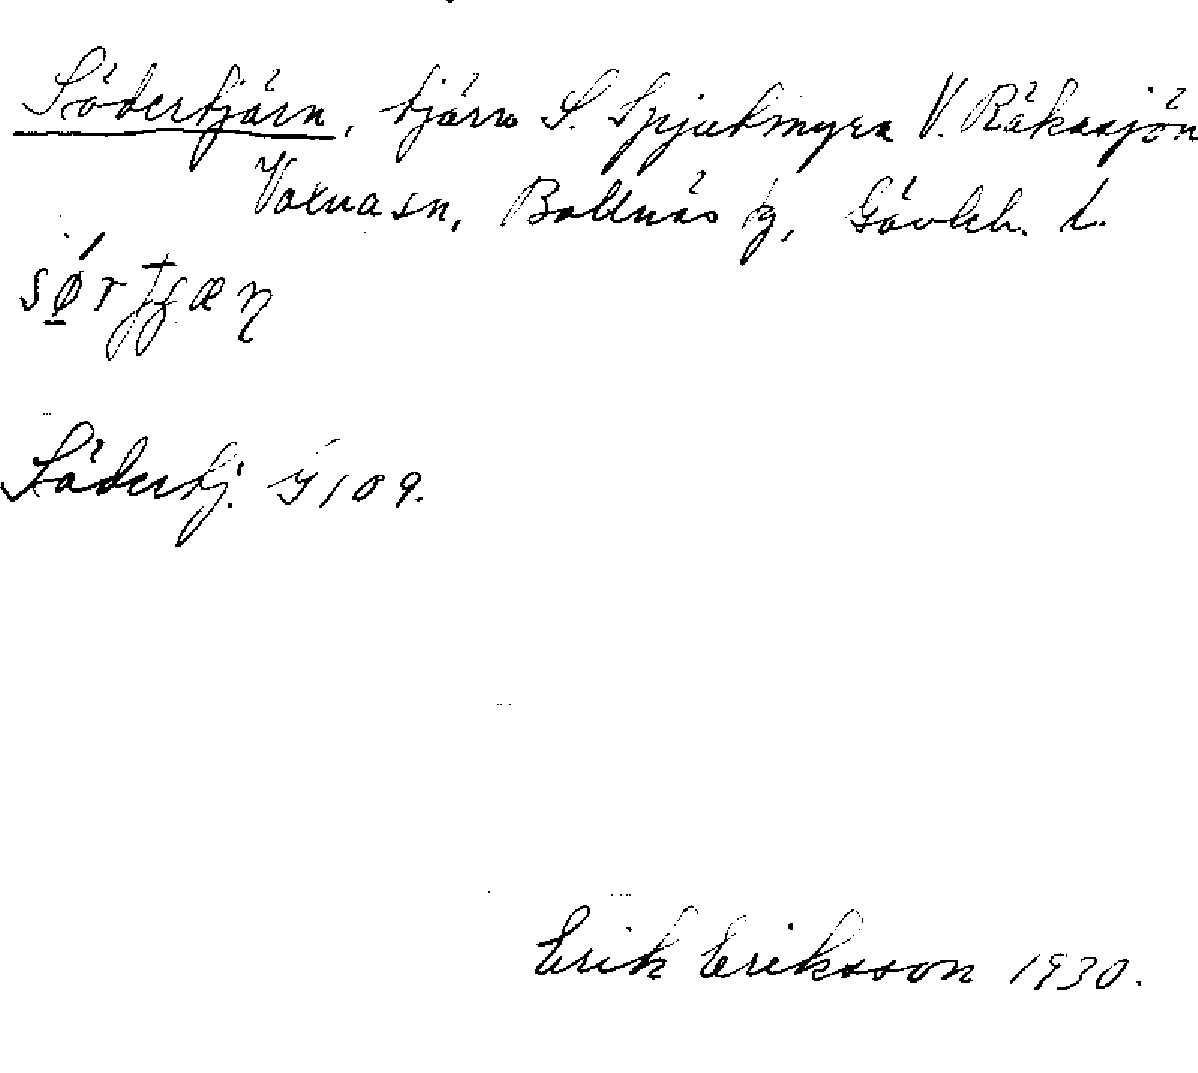 Södertjärn, tjärn S. Spjutmyra V. Räkasjön
Voxna sn, Bollnäs tg, Gävleb. l.
Södertj. G 109.
Erik Eriksson 1930.